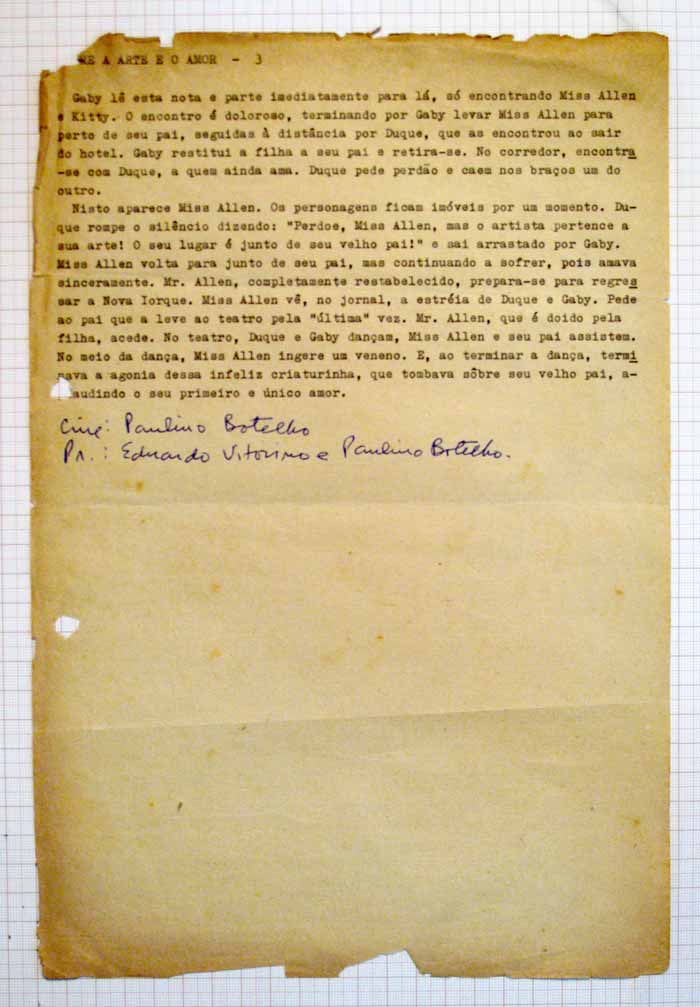 RE A ARTE E O AMOR - 3
Gaby lê esta nota e parte imediatamente para lá, só encontrando Miss Allen
e Kitty. O encontro é doloroso, terminando por Gaby levar Miss Allen para
perto de seu pai, seguidas à distância por Duque, que as encontrou ao sair
do hotel. Gaby restitui a filha a seu pai e retira-se. No corredor, encontra
-se com Duque, a quem ainda ama. Duque pede perdão e caem nos braços um do
outro.
Nisto aparece Miss Allen. Os personagens ficam imóveis por um momento. Du-
que rompe o silêncio dizendo: "Perdoe, Miss Allen, mas o artista pertence a
sua arte! O seu lugar é junto de seu velho pai!" e sai arrastado por Gaby.
Miss Allen volta para junto de seu pai, mas continuando a sofrer, pois amava
sinceramente. Mr. Allen, completamente restabelecido, prepara-se para regres
sar a Nova Iorque. Miss Allen vê, no jornal, a estréia de Duque e Gaby. Pede
ao pai que a leve ao teatro pela "última" vez. Mr. Allen, que é doido pela
filha, acede. No teatro, Duque e Gaby dançam, Miss Allen e seu pai assistem.
No meio da dança, Miss Allen ingere um veneno. E, ao terminar a dança, termi
nava a agonia dessa infeliz criaturinha, que tombava sôbre seu velho pai, a-
laudindo o seu primeiro e único amor.
Cine: Paulino Botelho
Pr.: Eduardo Vitorino e Paulino Botelho.